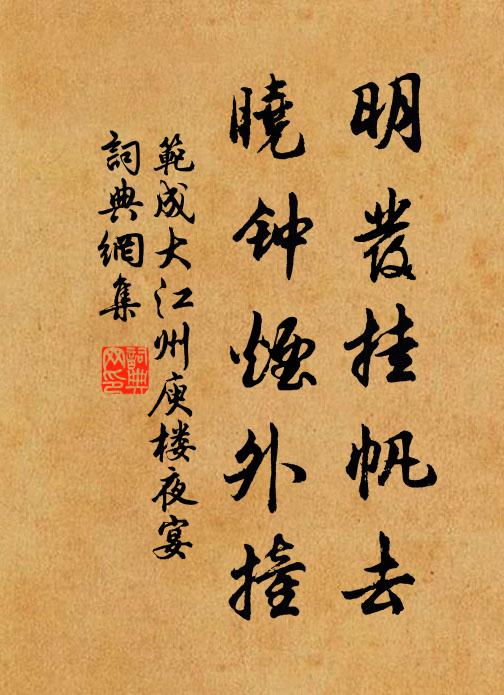 明發挂帆去
曉钟煙外撞
範成大江州庾楼夜宴
詞典網集
詞典网印